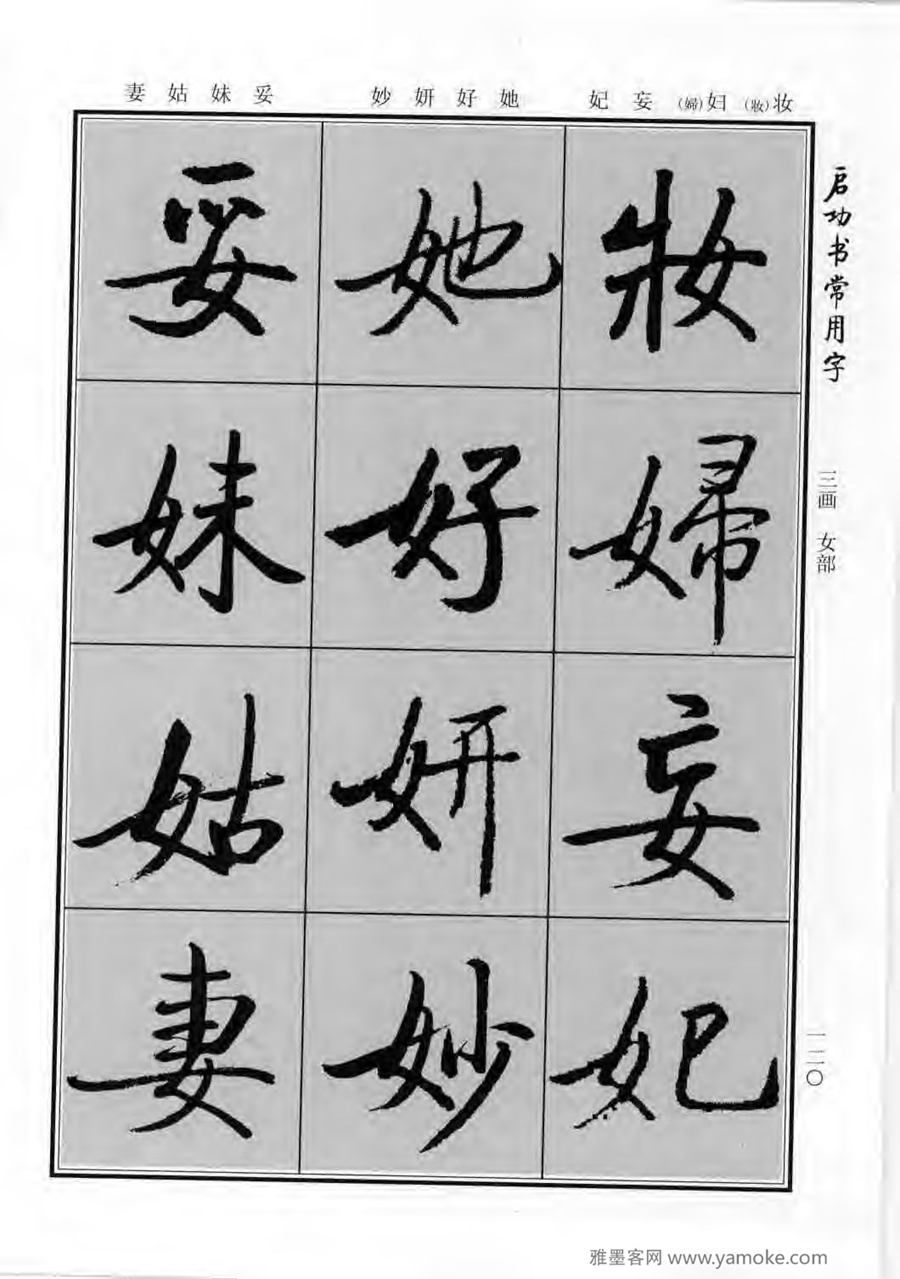 妻姑妹妥 妙妍好她 妃妄(婦)妇(妝)妆
启功书常用字
三画 女部
一二〇
妝婦妄妃
她好妍妙
妥妹姑妻
雅墨客网 www.yamoke.com